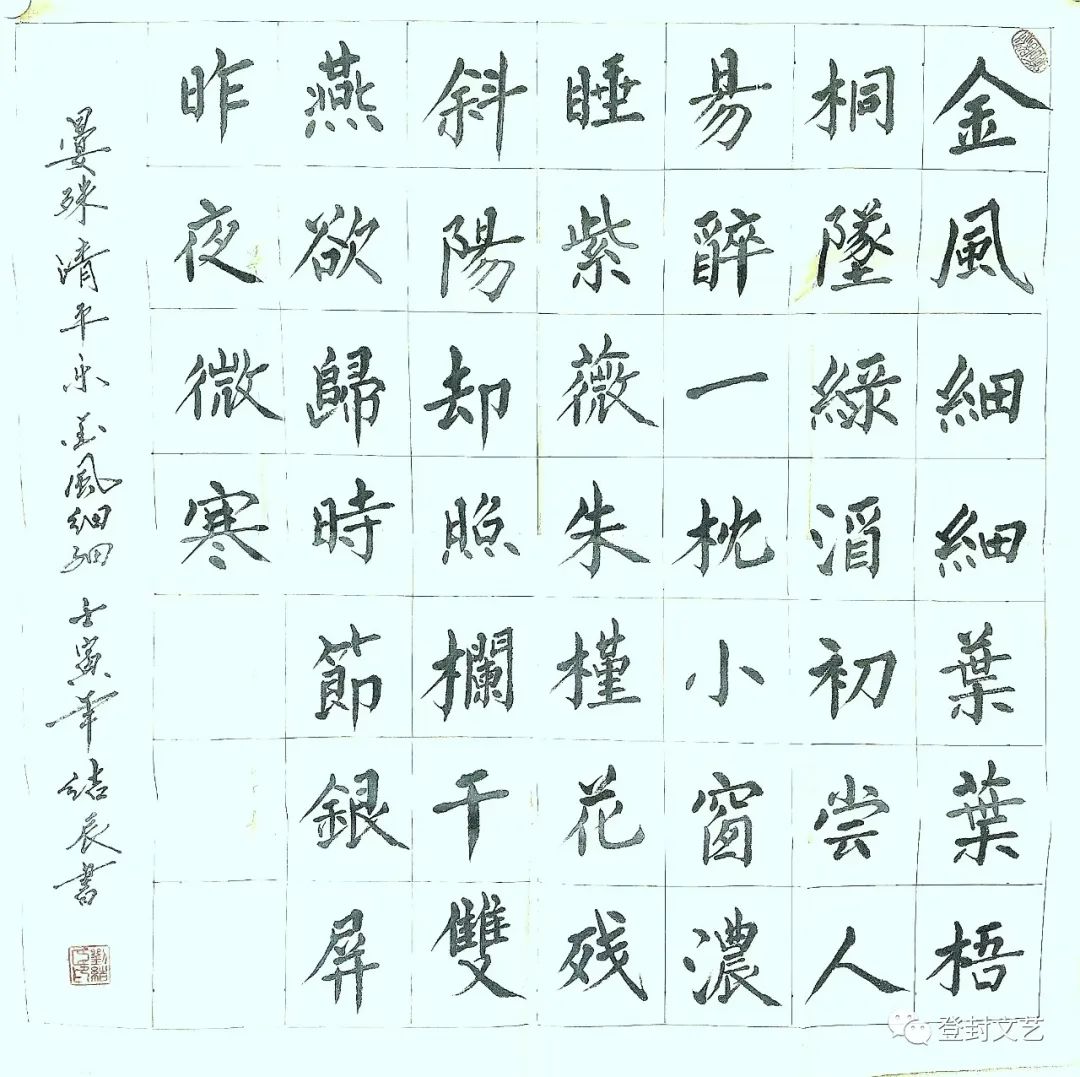 金風細細葉葉梧
桐墜綠酒初尝人
易醉一枕小窗濃
睡紫薇朱槿花残
斜陽却照欄干雙
燕欲歸時節銀屏
昨夜微寒
晏殊清平乐金風細細 壬寅年结辰書
登封文艺